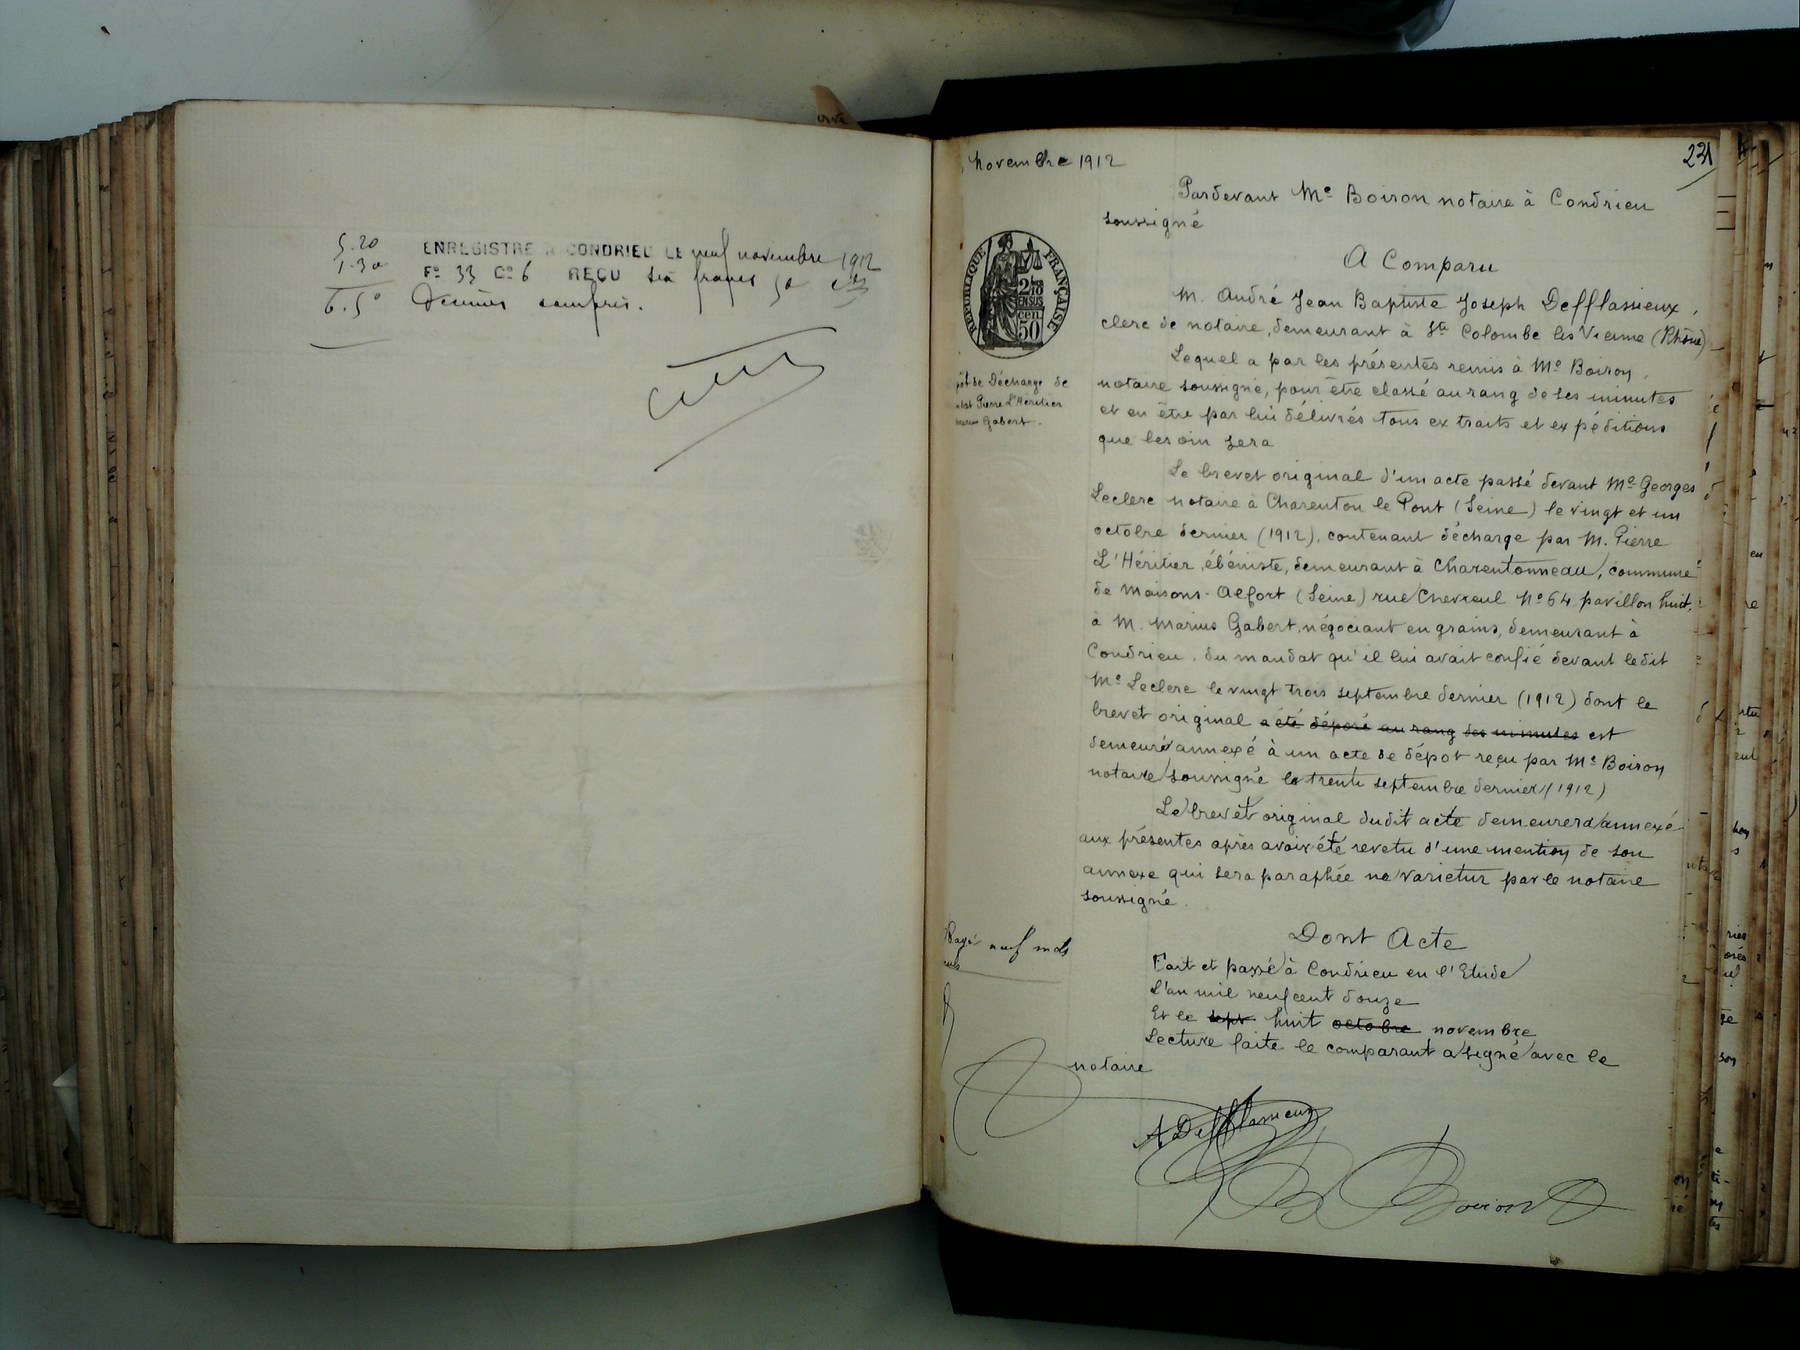 5.20
1.30
6.50
ENREGISTRÉ A CONDRIEU LE neuf novembre 1912
Fo 33 Co 6 REÇU six francs 50 cts
Décimes compris.
novembre 1912
231
RÉPUBLIQUE FRANÇAISE
2/10
EN SUS
cen
50
Pardevant Me Boiron notaire à Condrieu
soussigné
A Comparu
M. André Jean Baptiste Joseph Defflassieux,
clerc de notaire, demeurant à Ste Colombe les Vienne (Rhône)
Lequel a par les présentes remis à Me Boiron,
notaire soussigné, pour être classé au rang de ses minutes
et en être par lui délivrés tous extraits et expéditions
que besoin sera
Le brevet original d'un acte passé devant Me Georges
Leclerc notaire à Charenton le Pont (Seine) le vingt et un
octobre dernier (1912), contenant décharge par M. Pierre
L'Héritier, ébéniste, demeurant à Charentonneau, commune
de Maisons-Alfort (Seine) rue Chevreul No 64, pavillon huit,
à M. Marius Gabert, négociant en grains, demeurant à
Condrieu, du mandat qu'il lui avait confié devant ledit
Me Leclerc le vingt trois septembre dernier (1912) dont le
brevet original a été déposé au rang des minutes est
demeuré annexé à un acte de dépot reçu par Me Boiron
notaire soussigné le trente septembre dernier (1912)
Le brevet original dudit acte demeurera annexé
aux présentes après avoir été revetu d'une mention de son
annexe qui sera paraphée ne varietur par le notaire
soussigné.
Dont Acte
Fait et passé à Condrieu en l'Etude
L'an mil neuf cent douze
Et le sept huit octobre novembre
Lecture faite le comparant a signé avec le
notaire
de Décharge de
Pierre L'Héritier
Gabert.
Rayé neuf mots
nuls
A Defflassieux
Boiron